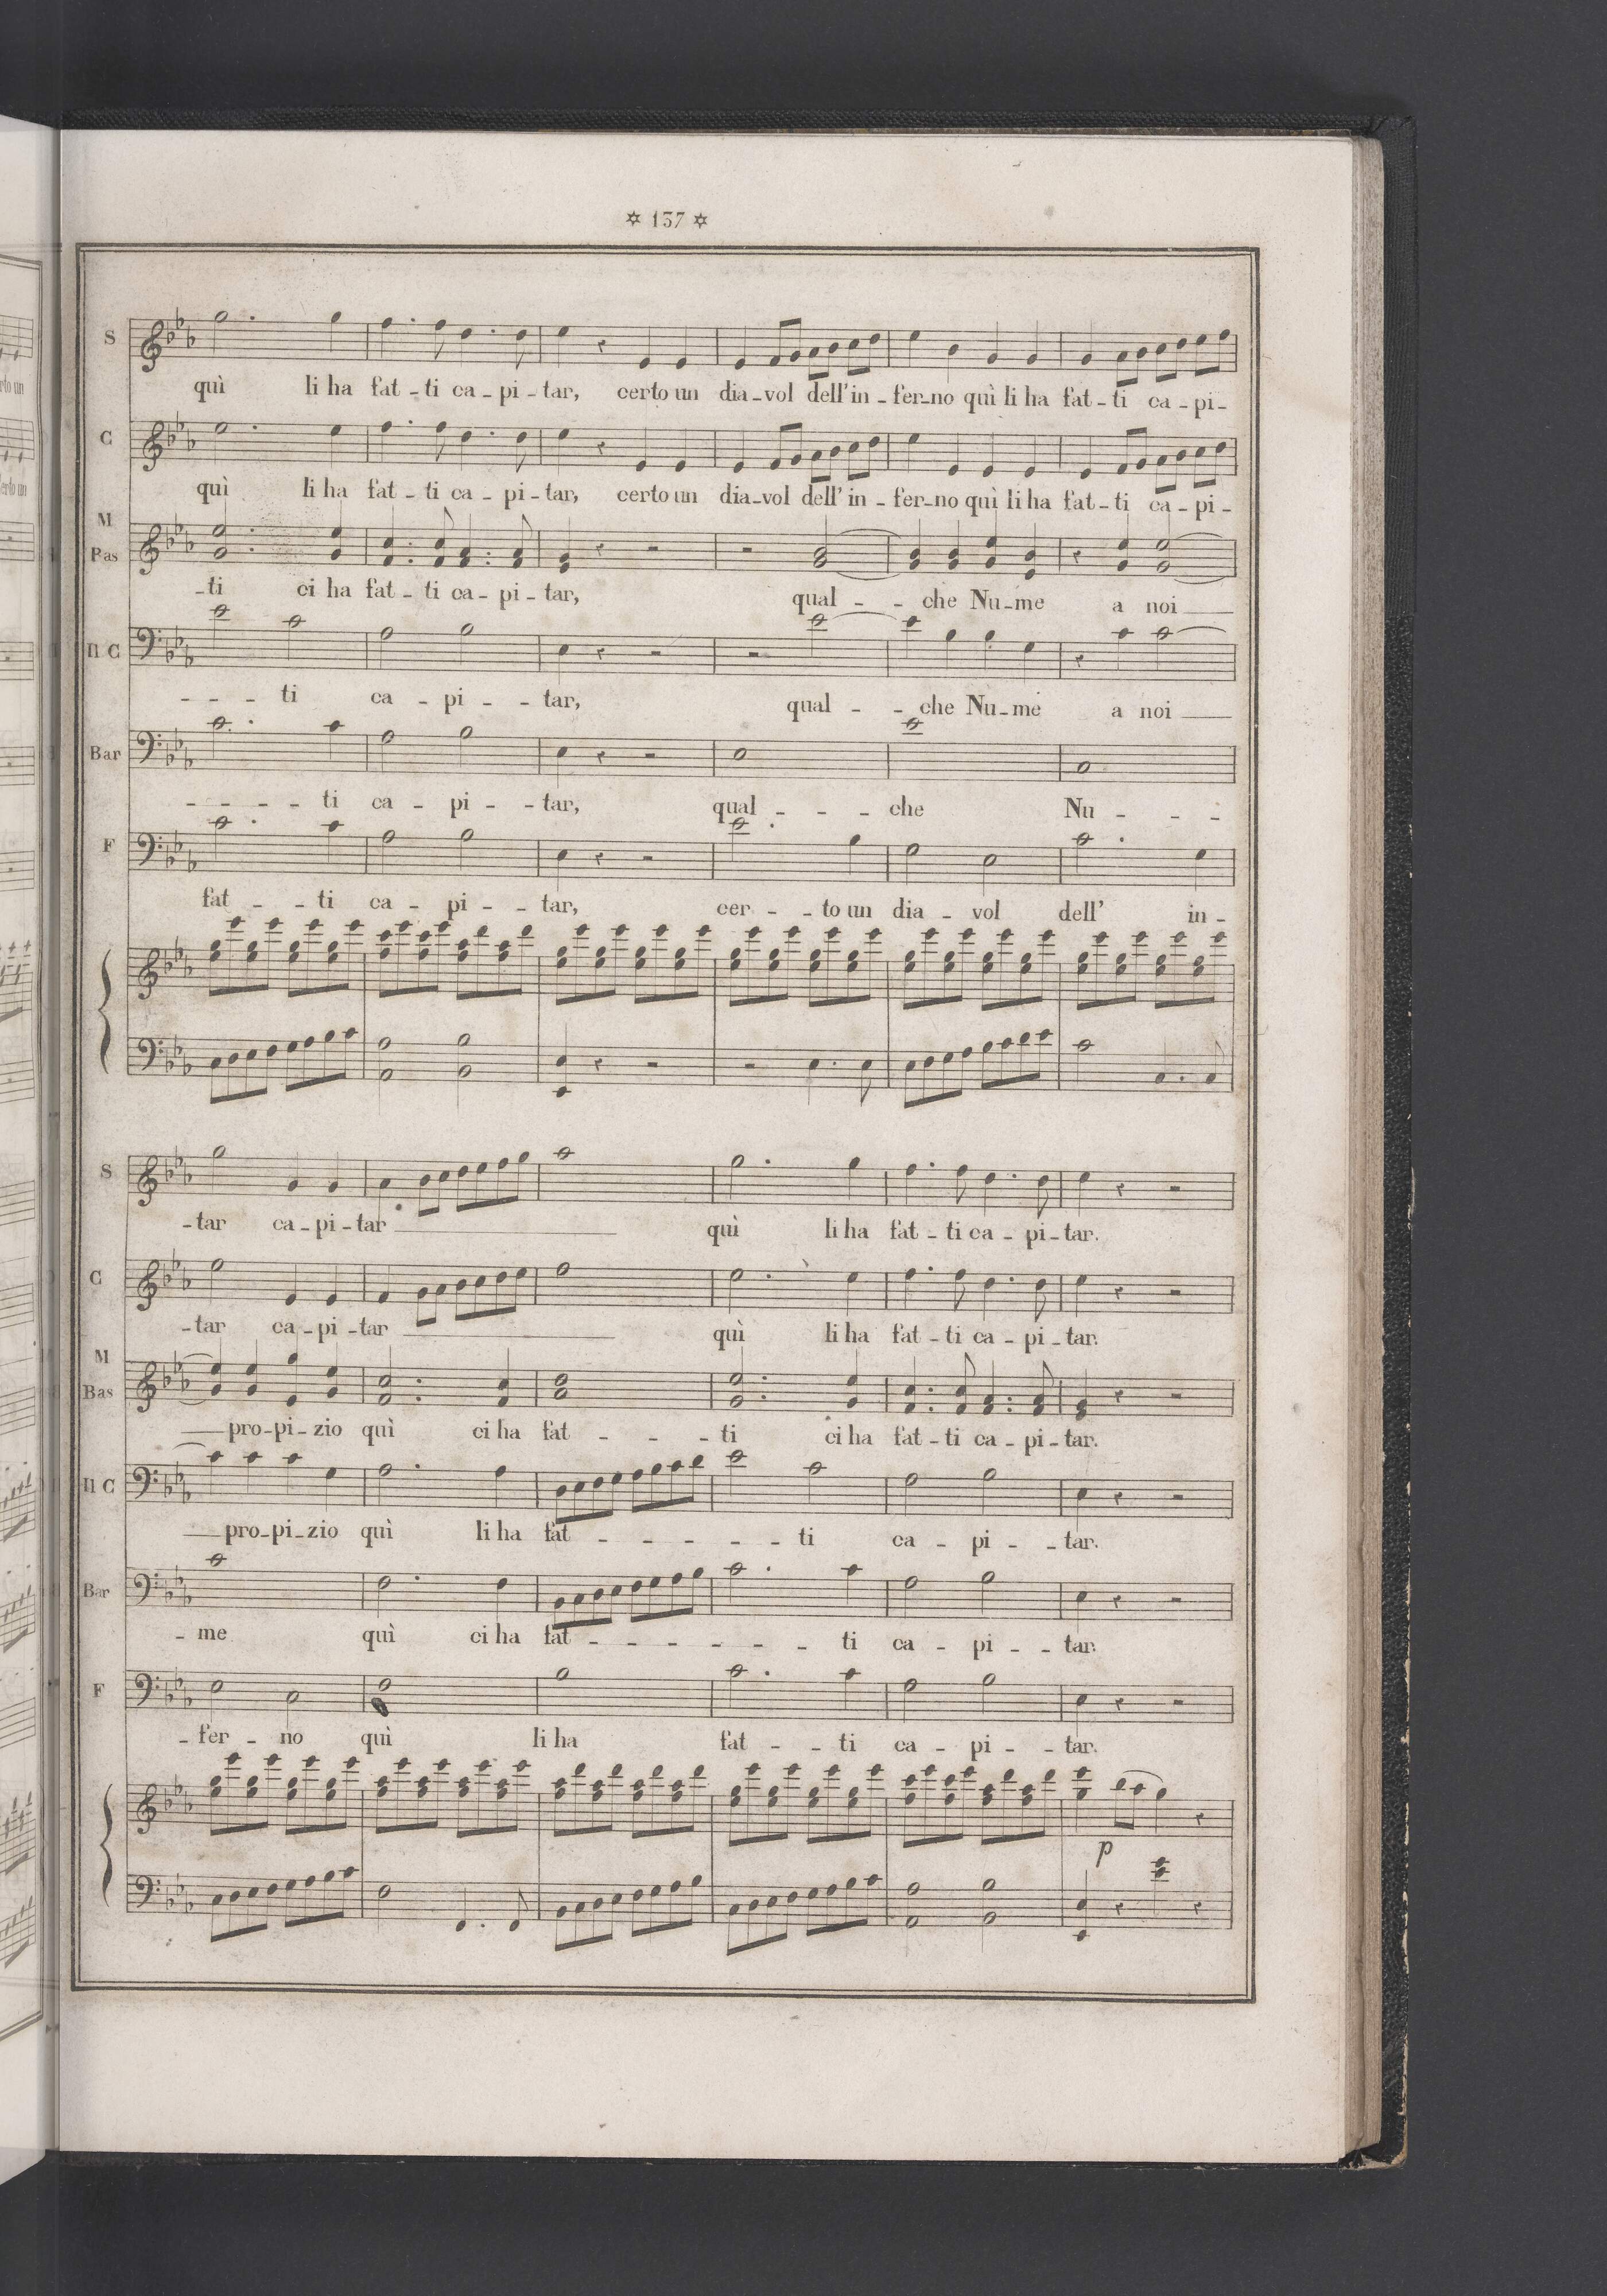 ✡ 137 ✡
S
quì li ha fat - ti ca - pi - tar, certo un dia - vol dell' in - fer - no quì li ha fat - ti ca - pi -
C
quì li ha fat - ti ca - pi - tar, certo un dia - vol dell' in - fer - no quì li ha fat - ti ca - pi -
M
Bas
- ti ci ha fat - ti ca - pi - tar, qual - - che Nu - me a noi
Il C
- - - ti ca - pi - - tar, qual - - che Nu - me a noi
Bar
- - - - ti ca - pi - - tar, qual - - - che Nu - - -
F
fat - - - ti ca - pi - - tar, cer - - to un dia - vol dell' in -
S
- tar ca - pi - tar quì li ha fat - ti ca - pi - tar.
C
- tar ca - pi - tar quì li ha fat - ti ca - pi - tar.
M
Bas
pro - pi - zio quì ci ha fat - - - ti ci ha fat - ti ca - pi - tar.
Il C
pro - pi - zio quì li ha fat - - - - - - ti ca - pi - - tar.
Bar
- me quì ci ha fat - - - - - - - ti ca - pi - - tar.
F
- fer - no quì li ha fat - - ti ca - pi - - tar.
p